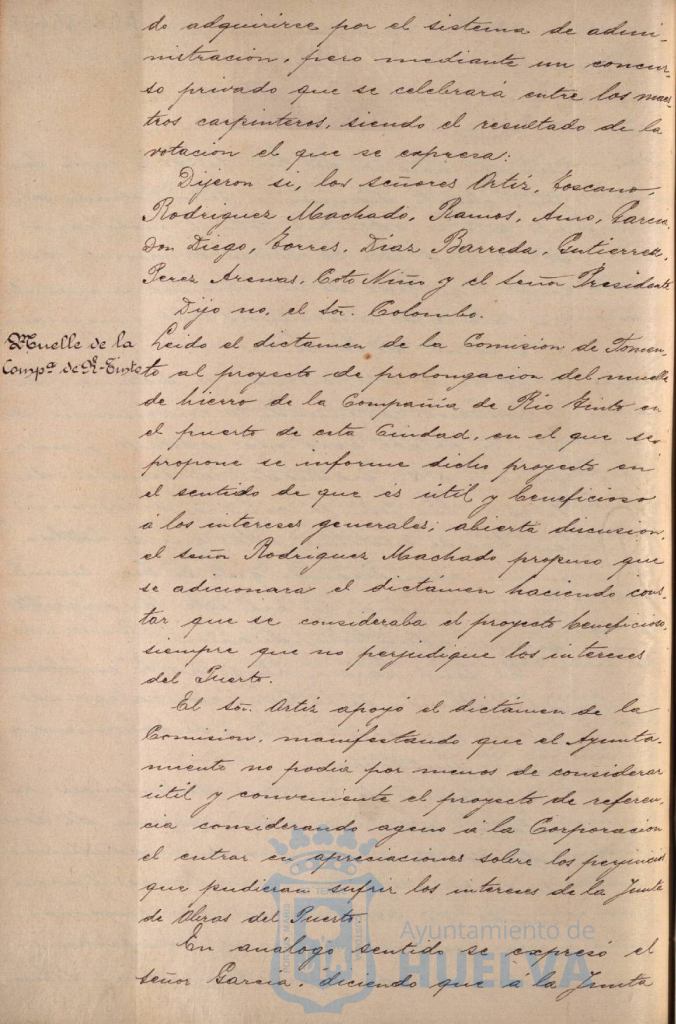 do adquirirse por el sistema de admi-
nistracion, pero mediante un concur-
so privado que se celebrará entre los maes-
tros carpinteros, siendo el resultado de la
votacion el que se expresa:
Dijeron si, los señores Ortiz, Toscano,
Rodriguez Machado, Ramos, Amo, Garcia
Don Diego, Torres, Diaz Barreda, Gutierrez,
Perez Arenas, Coto Niño y el señor Presidente
Dijo no, el Sor. Colombo.
Muelle de la
Compª de R. Tinto
Leido el dictamen de la Comision de Fomen-
to al proyecto de prolongacion del muelle
de hierro de la Compañia de Rio Tinto en
el puerto de esta Ciudad, en el que se
propone se informe dicho proyecto en
el sentido de que és útil y beneficioso
á los intereses generales; abierta discusion,
el señor Rodriguez Machado propuso que
se adicionara el dictámen haciendo cons-
tar que se consideraba el proyecto beneficioso,
siempre que no perjudique los intereses
del Puerto.
El Sor. Ortiz apoyó el dictámen de la
Comision, manifestando que el Ayunta-
miento no podia por menos de considerar
útil y conveniente el proyecto de referen-
cia considerando ageno á la Corporacion
el entrar en apreciaciones sobre los perjuicios
que pudieran sufrir los intereses de la Junta
de Obras del Puerto
En análogo sentido se expresó el
señor Garcia, diciendo que á la Junta
Ayuntamiento de
HUELVA